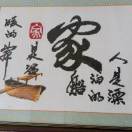 人是漂
泊的
船
家
家
是温
暖的